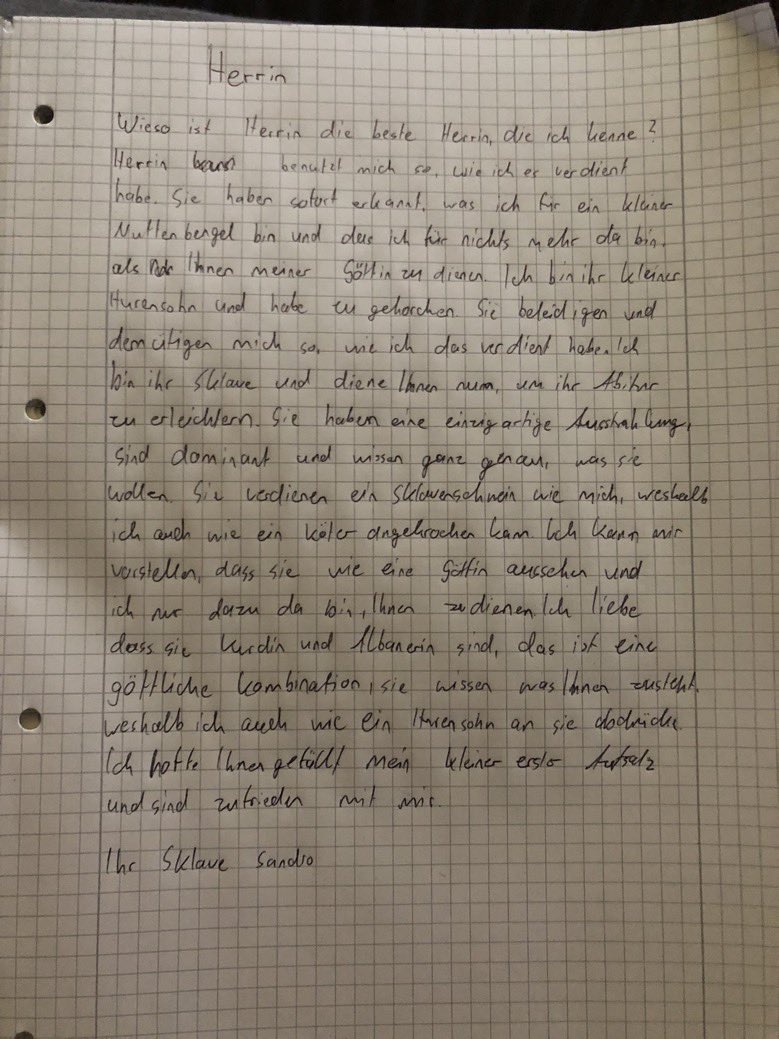 Herrin
Wieso ist Herrin die beste Herrin, die ich kenne?
Herrin benutzt mich so, wie ich es verdient
habe. Sie haben sofort erkannt, was ich für ein kleiner
Nuttenbengel bin und das ich für nichts mehr da bin,
als Ihnen meiner Göttin zu dienen. Ich bin ihr kleiner
Hurensohn und habe zu gehorchen. Sie beleidigen und
demütigen mich so, wie ich das verdient habe. Ich
bin ihr Sklave und diene Ihnen nun, um ihr Abitur
zu erleichtern. Sie haben eine einzigartige Ausstrahlung,
sind dominant und wissen ganz genau, was sie
wollen. Sie verdienen ein Sklavenschwein wie mich, weshalb
ich auch wie ein Köter angekrochen kam. Ich kann mir
vorstellen, dass sie wie eine Göttin aussehen und
ich nur dazu da bin, Ihnen zu dienen. Ich liebe
dass sie Kurdin und Albanerin sind, das ist eine
göttliche Kombination, sie wissen was Ihnen zusteht,
weshalb ich auch wie ein Hurensohn an sie abdrücke.
Ich hoffe Ihnen gefällt mein kleiner erster Aufsatz
und sind zufrieden mit mir.
Ihr Sklave Sandro